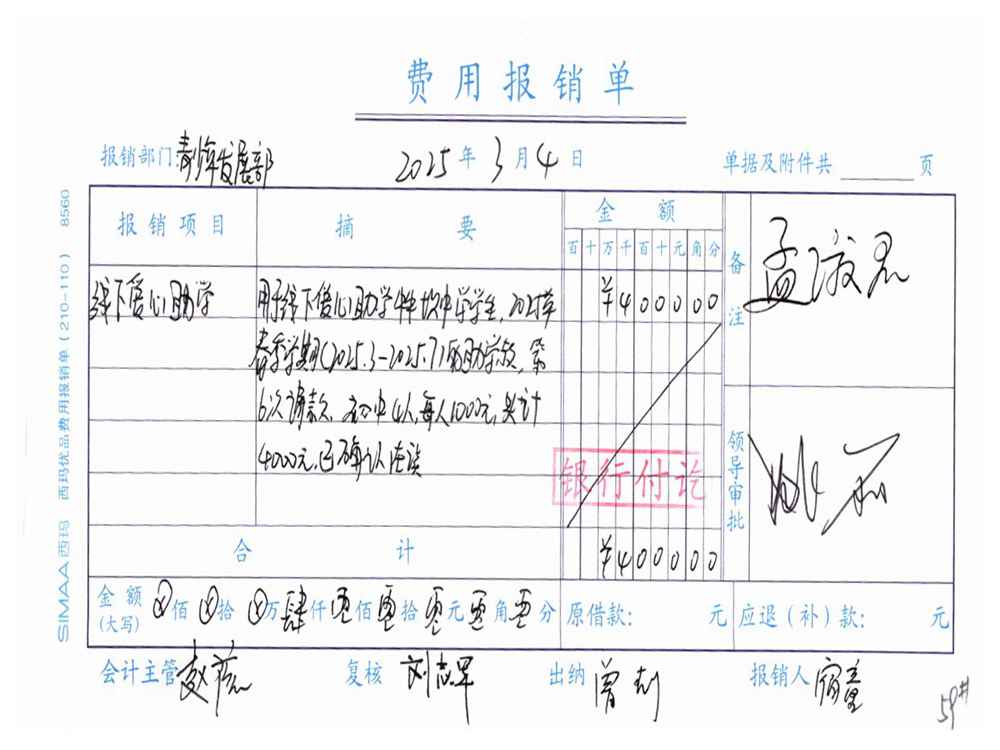 费用报销单
报销部门:青少年发展部 2025年3月4日 单据及附件共 页
报销项目 摘要 金额 备注
百十万千百十元角分
线下爱心助学 用于线下爱心助学 中学学生,2025年 ¥400000
春季学期(2025.3-2025.7)的助学款,第
6次请款,初中4人,每人1000元,共计
4000元,已确认
银行付讫
领导审批
合计 ¥400000
金额(大写) ⊗佰⊗拾⊗万肆仟零佰零拾零元零角零分 原借款: 元 应退(补)款: 元
会计主管 赵 复核 刘志军 出纳 曾 报销人
59#
SIMAA西玛 西玛优品费用报销单(210-110) 8560